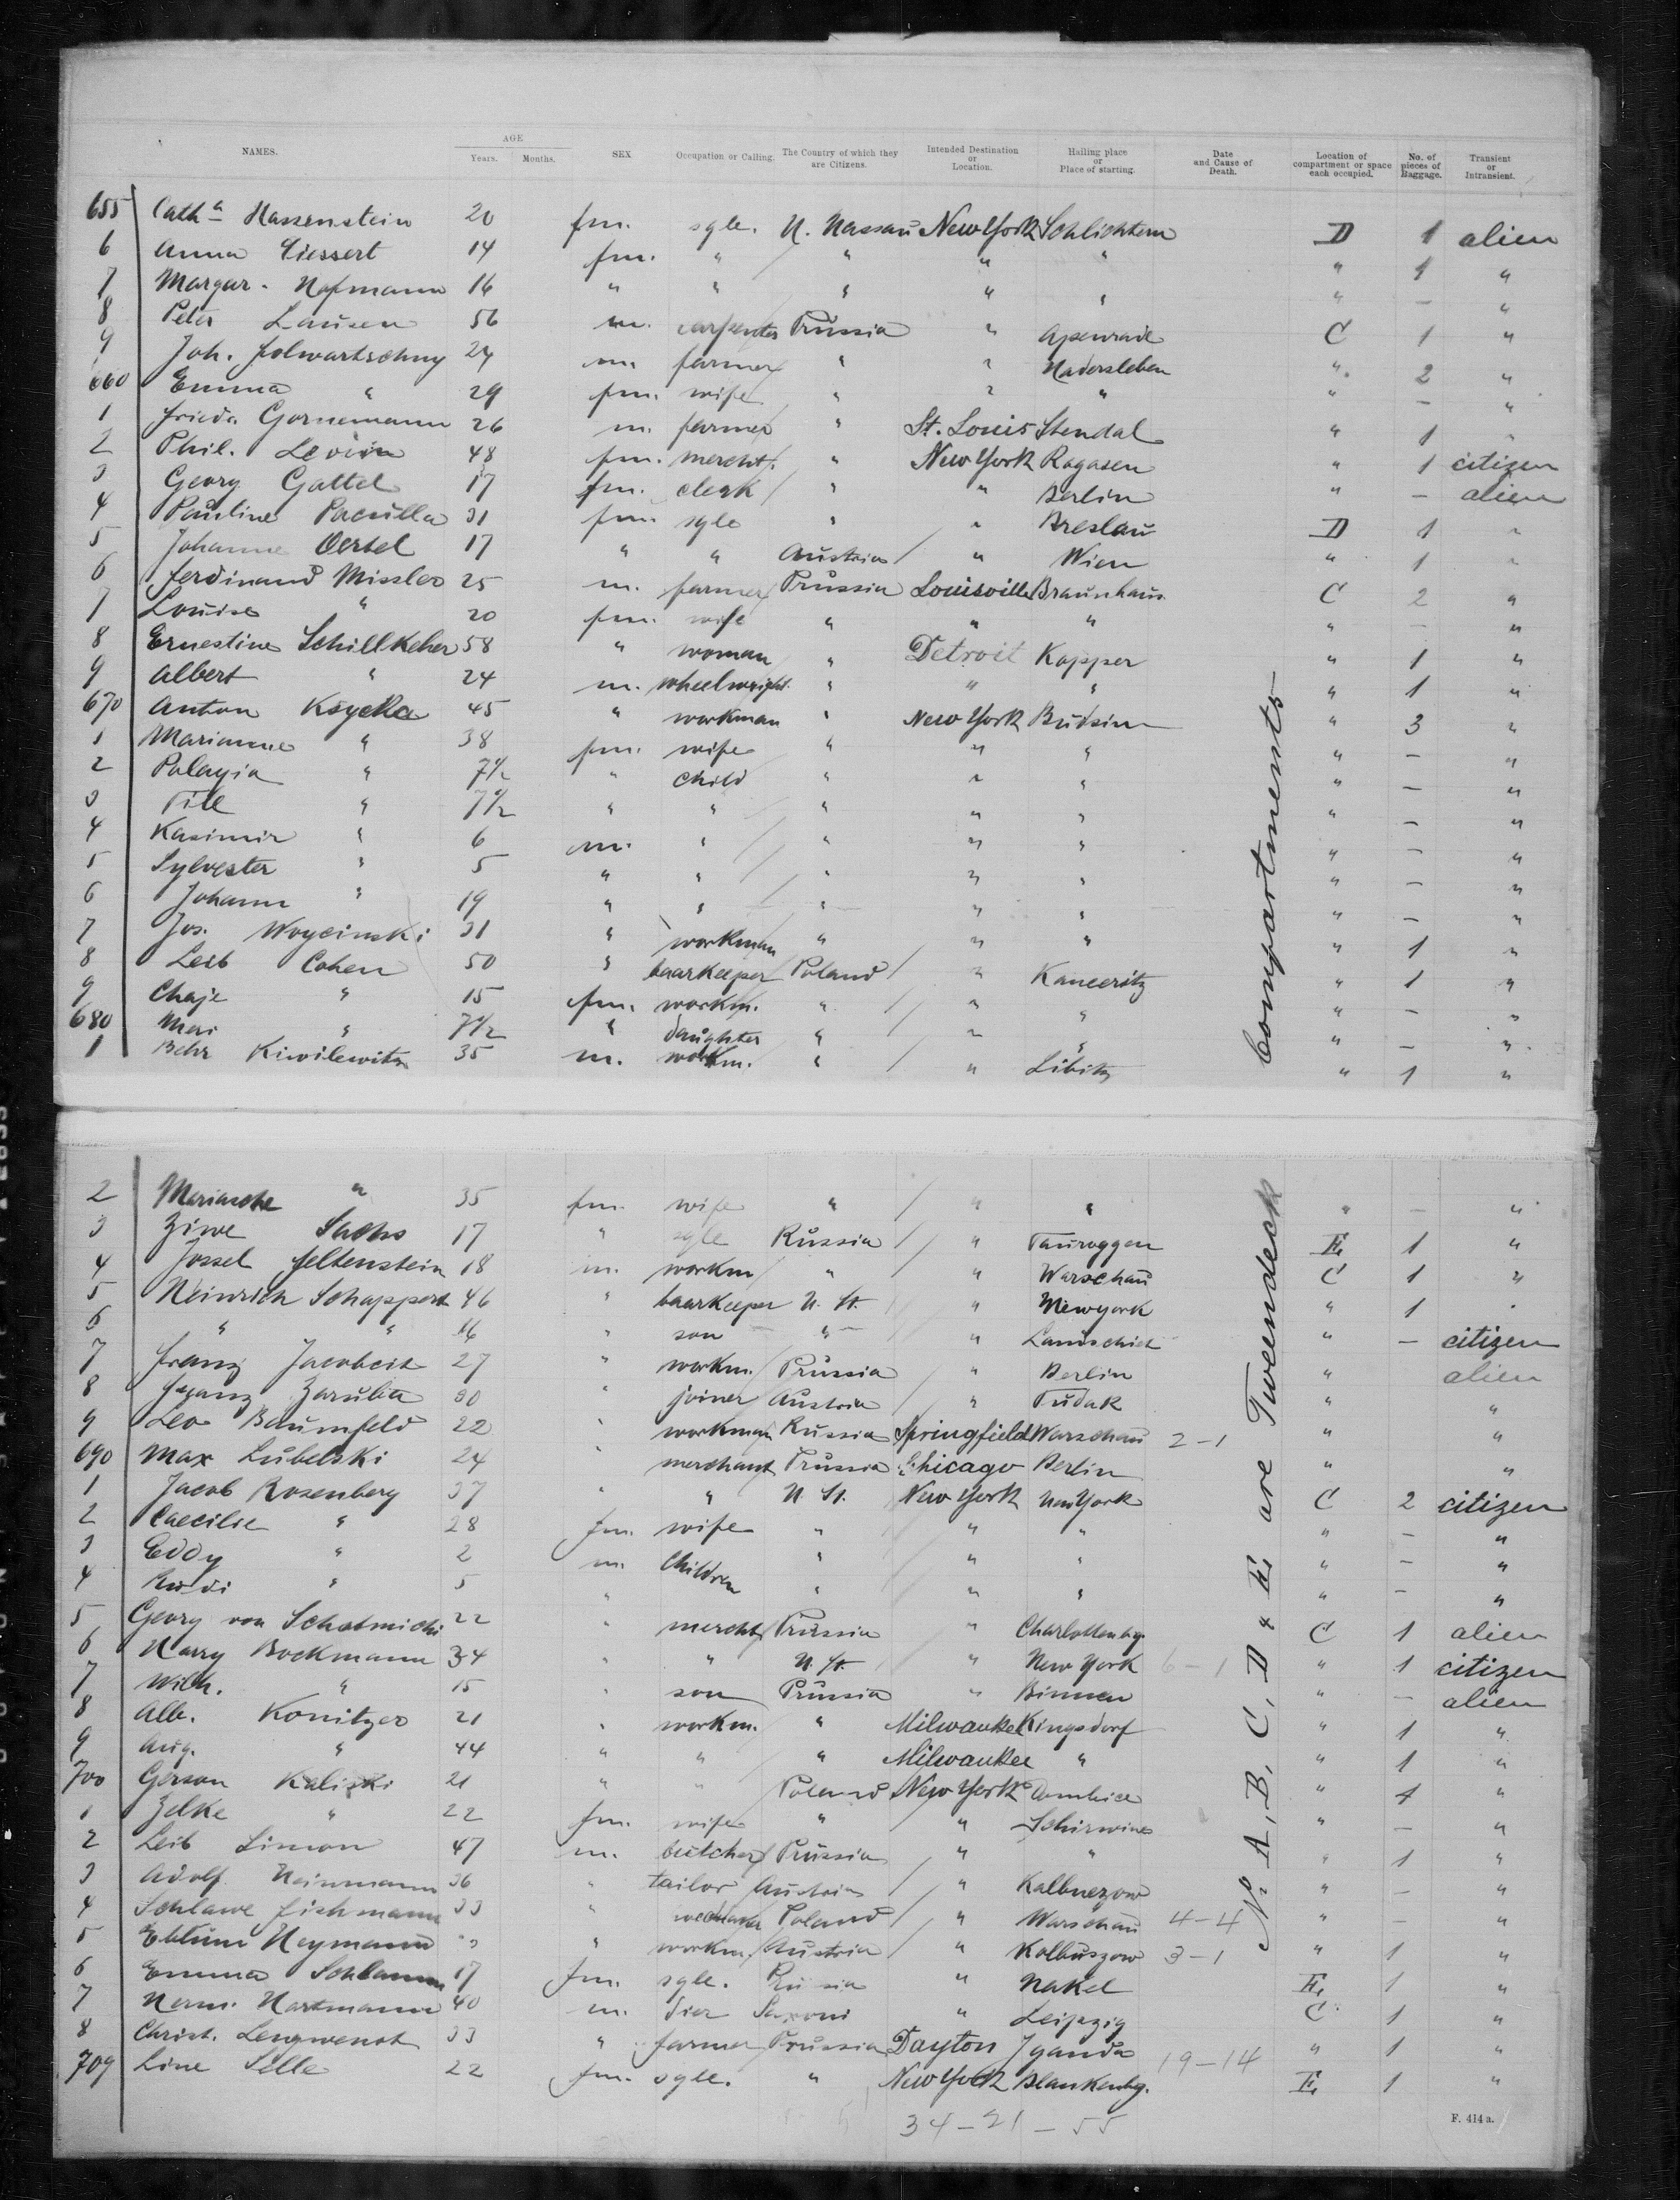 NAMES. AGE Years. Months. SEX Occupation or Calling. The Country of which they are Citizens. Intended Destination or Location. Hailing place or Place of starting. Date and Cause of Death. Location of compartment or space each occupied. No. of pieces of Baggage. Transient or Intransient.
655 Cath.a Hassenstein 20 fm. sgle. H. Nassau New York Schlichtern D 1 alien
6 Anna Giessert 14 fm. " " " " " 1 "
7 Margar. Hofmann 16 " " " " " " — "
8 Peter Lausen 56 m. carpenter Prussia " Apenrade C 1 "
9 Joh. Folwartschny 27 m. farmer " " Hadersleben " 2 "
660 Emma " 29 fm. wife " " " " — "
1 Frieda Gornemann 26 m. farmer " St. Louis Stendal " 1 "
2 Phil. Levin 48 fm. mercht. " New York Rogasen " 1 citizen
3 Georg Gattel 17 fm. clerk " " Berlin " — alien
4 Pauline Pacsulla 31 fm. sgle " " Breslau D 1 "
5 Johanne Oertel 17 " " Austria " Wien " 1 "
6 Ferdinand Missler 25 m. farmer Prussia Louisville Braunhaus. C 2 "
7 Louise " 20 fm. wife " " " " — "
8 Ernestine Schillkeher 58 " woman " Detroit Kopper " 1 "
9 Albert " 24 m. wheelwright. " " " " 1 "
670 Anton Ksycka 45 " workman " New York Budsin " 3 "
1 Marianne " 38 fm. wife " " " " — "
2 Pelagia " 7 1/2 " child " " " " — "
3 Till " 7 1/2 " " " " " " — "
4 Kasimir " 6 m. " " " " " — "
5 Sylvester " 5 " " " " " " — "
6 Johann " 19 " " " " " " — "
7 Jos. Woycinski 31 " workman " " " " 1 "
8 Leib Cohen 50 " baarkeeper Poland " Kanceritz " 1 "
9 Chaje " 15 fm. workm. " " " " — "
680 Mari " 7 1/2 " daughter " " " " — "
1 Behr Kiwilewitz 35 m. workm. " " Libitz " 1 "
2 Mariasche " 35 fm. wife " " " " — "
3 Ziwe Sachs 17 " sgle Russia " Tauroggen E. 1 "
4 Jossel Feltenstein 18 m. workm " " Warschau C 1 "
5 Heinrich Schappert 46 " baarkeeper U. St. " Newyork " 1 "
6 " " 16 " son " " Landschied " — citizen
7 Franz Jacobeit 27 " workm. Prussia " Berlin " alien
8 Franz Zarulba 30 " joiner Austria " Tudak " "
9 Leo Baumfeld 22 " workman Russia Springfield Warschau 2-1 " "
690 Max Lubelski 24 " merchant Prussia Chicago Berlin " "
1 Jacob Rosenberg 37 " " U. St. New York New York C 2 citizen
2 Caecilie " 28 fm. wife " " " " — "
3 Eddy " 2 m. Children " " " " — "
4 Rudi " 5 " " " " " — "
5 Georg von 22 " mercht Prussia " Charlottenbg. C 1 alien
6 Harry Bockmann 34 " " U. St. " New York 6-1 " 1 citizen
7 Wilh. " 15 " son Prussia " Binnen " — alien
8 Alb. Konitzer 21 " workm. " Milwaukee Kingsdorf " 1 "
9 Aug. " 44 " " " Milwaukee " " 1 "
700 Gerson Kaliski 21 " " Poland New York " "
1 Zelke " 22 fm. wife " " Schirwine " — "
2 Leib Simon 47 m. butcher Prussia " " " 1 "
3 Adolf Heinmann 36 " tailor Austria " Kalbuezow " — "
4 Schlawe Fishmann 33 " Poland " Warschau 4-4 " — "
5 Heymann " workm. Austria " Kolbuszow 3-1 " 1 "
6 Emma Schlamm 17 fm. sgle. Prussia " Nakel E. 1 "
7 Herm. Hartmann 40 m. dier Saxoni " Leipzig C 1 "
8 Christ. Lengwenat 33 " farmer Prussia Dayton " 1 "
709 Line Selle 22 fm. sgle. " New York Blankenbg. 19-14 E. 1 "
34-21-55
No. A, B, C, D & E. are Tweendeck Compartments
F. 414 a.